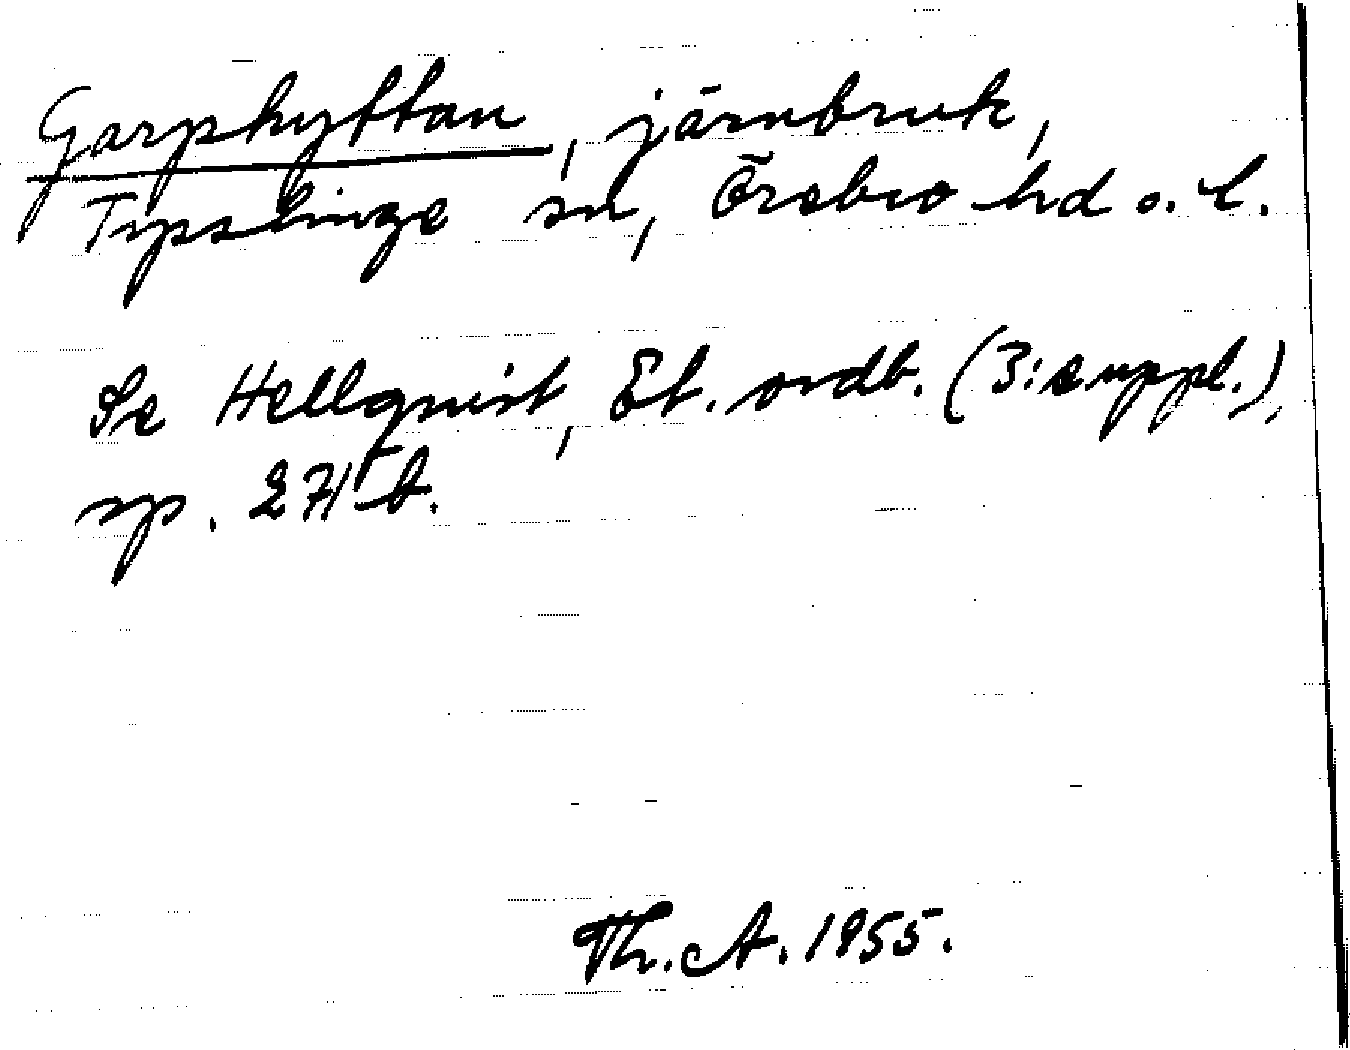 Garphyttan, järnbruk,
Tysslinge sn, Örebro hd o. l.
Se Hellquist, Et. ordb. (3: suppl.),
sp. 271 b.
Th. A. 1955.